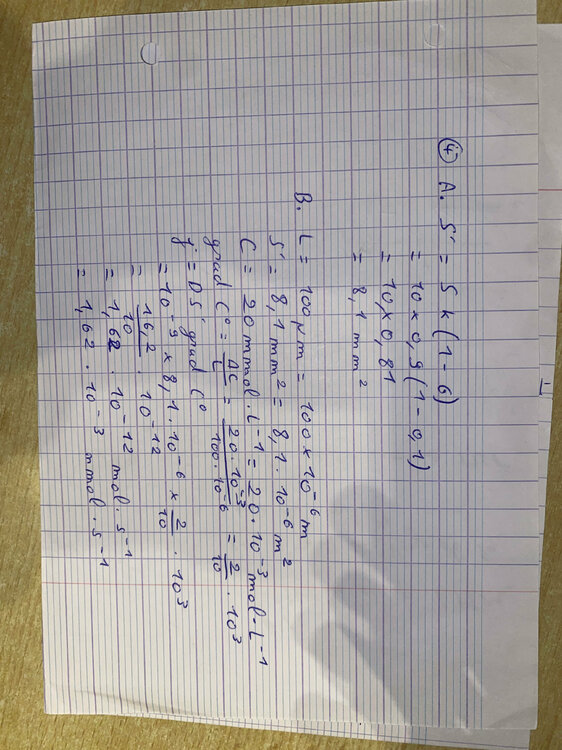 ④ A. S' = S k (1-6)
= 10 x 0,9 (1-0,1)
= 10 x 0,81
= 8,1 mm²
B. L = 100 μm = 100 x 10⁻⁶ m
S' = 8,1 mm² = 8,1 . 10⁻⁶ m²
C = 20 mmol . L⁻¹ = 20 . 10⁻³ mol . L⁻¹
grad C° = ΔC/L = 20 . 10⁻³/100 . 10⁻⁶ = 2/10 . 10³
j = D S' grad C°
= 10⁻⁹ x 8,1 . 10⁻⁶ x 2/10 . 10³
= 16,2/10 . 10⁻¹²
= 1,62 . 10⁻¹² mol . s⁻¹
= 1,62 . 10⁻³ mmol . s⁻¹